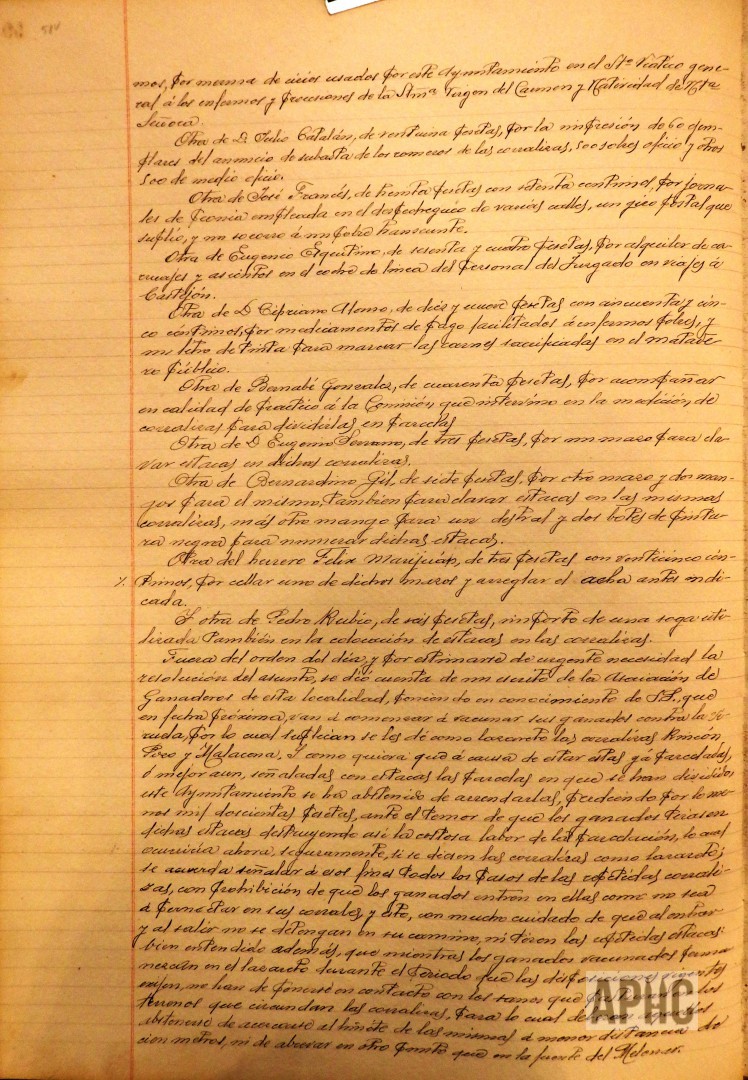 514
mos, por merma de cirios usados por este Ayuntamiento en el Stº Viático gene-
ral á los enfermos y procesiones de la Stmª Virgen del Carmen y Natividad de Ntra
Señora.
Otra de D. Pedro Catalán, de veintiuna pesetas, por la impresión de 60 ejem-
plares del anuncio de subasta de los romeros de las corralizas, 500 sobres oficio y otros
500 de medio oficio.
Otra de José Francés, de treinta pesetas con setenta céntimos, por jorna-
les de peonia empleada en el despedreguéo de varias calles, un giro postal que
suplió, y un socorro á un pobre transeunte.
Otra de Eugenio Ezquitino, de sesenta y cuatro pesetas, por alquiler de ca-
rruajes y asientos en el coche de linea del personal del Juzgado en viajes á
Castejón.
Otra de D. Cipriano Alonso, de diez y nueve pesetas con cincuenta y cin-
co céntimos, por medicamentos de pago facilitados á enfermos pobres, y
un litro de tinta para marcar las carnes sacrificadas en el matade-
ro público.
Otra de Bernabé Gonzalez, de cuarenta pesetas, por acompañar
en calidad de práctico á la Comisión que intervino en la medición de
corralizas para dividirlas en parcelas
Otra de D. Eugenio Serrano, de tres pesetas, por un mazo para cla-
var estacas en dichas corralizas.
Otra de Bernardino Gil, de siete pesetas, por otro mazo y dos man-
gos para el mismo, tambien para clavar estacas en las mismas
corralizas, más otro mango para un destral y dos botes de pintu-
ra negra para numerar dichas estacas.
Otra del herrero Felix Marijuán, de tres pesetas con veinticinco cén-
timos, por cellar uno de dichos mazos y arreglar el acha antes indi-
cada.
Y otra de Pedro Rubio, de seis pesetas, importe de una soga uti-
lizada también en la colocación de estacas en las corralizas.
Fuera del orden del día, y por estimarse de urgente necesidad la
resolución del asunto, se dió cuenta de un escrito de la Asociación de
Ganaderos de esta localidad, poniendo en conocimiento de S.S. que
en fecha próxima, van á comenzar á vacunar sus ganados contra la vi-
ruela, por lo cual suplican se les dé como lazareto las corralizas Rincón
Poco y Malacena, Y como quiera que á causa de estar estas yá parceladas,
ó mejor aun, señaladas con estacas las parcelas en que se han dividido,
este Ayuntamiento se ha abstenido de arrendarlas, perdiendo por lo me-
nos mil doscientas pesetas, ante el temor de que los ganados tirasen
dichas estacas destruyendo así la costosa labor de la parcelación, lo cual
ocurriría ahora, seguramente, si se diesen las corralizas como lazareto;
se acuerda señalar á esos fines todos los pasos de las repetidas corrali-
zas, con prohibición de que los ganados entren en ellas como no sea
á pernoctar en sus corrales, y esto, con mucho cuidado de que al entrar
y al salir no se detengan en su camino, ni tiren las repetidas estacas:
bien entendido además, que mientras los ganados vacunados perma-
nezcan en el lazareto durante el periodo que las disposiciones vigentes
exijen, no han de ponerse en contacto con los sanos que los
terrenos que circundan las corralizas, para lo cual
abstenerse de acercarse al límite de las mismas á menor distancia de
cien metros, ni de abrevar en otro punto que en la fuente del
APHC